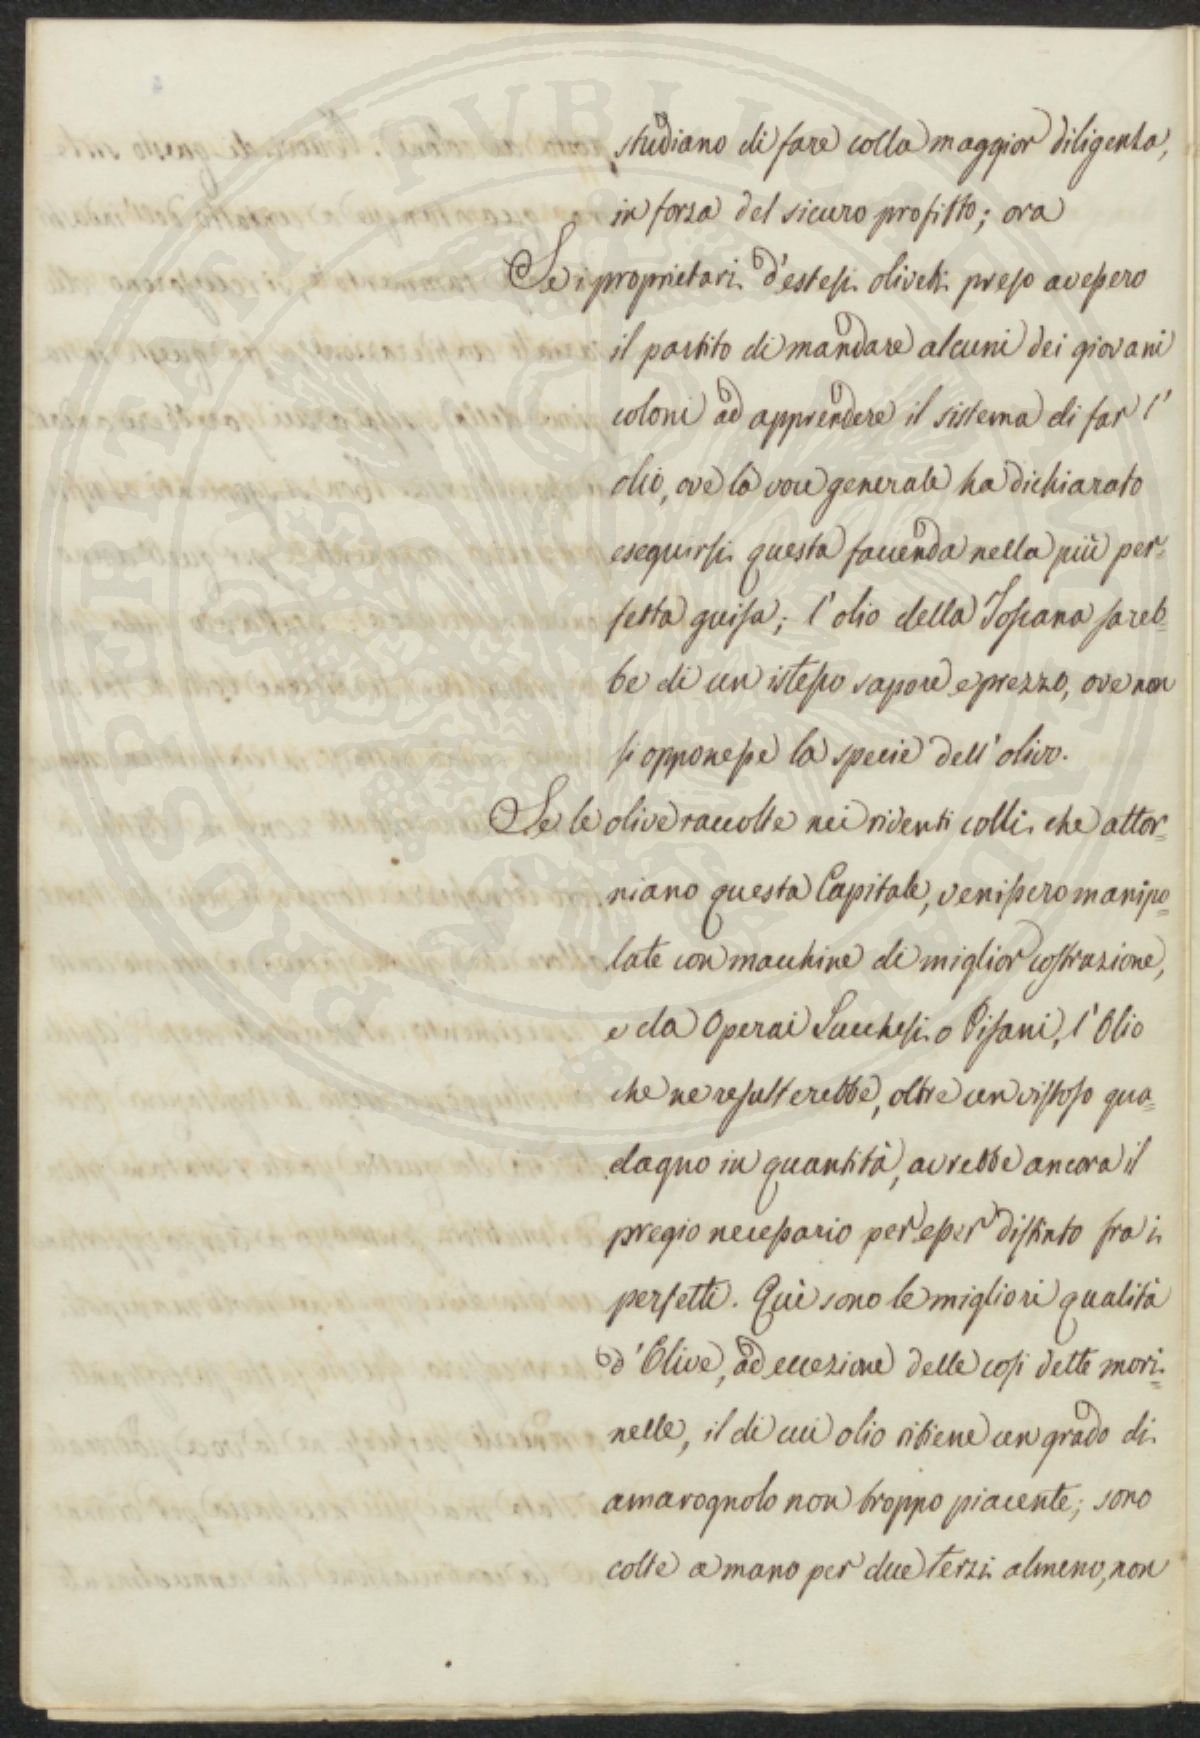 studiano di fare colla maggior diligenza,
in forza del sicuro profitto; ora
Se i proprietari d'estesi oliveti preso avessero
il partito di mandare alcuni dei giovani
coloni ad apprendere il sistema di far l'
olio, ove la voce generale ha dichiarato
eseguirsi questa faccenda nella più per=
fetta guisa; l'olio della Toscana sareb=
be di un istesso sapore e prezzo, ove non
si opponesse la specie dell'olivo.
Se le olive raccolte nei ridenti colli che attor=
niano questa Capitale, venissero manipo=
late con macchine di miglior costrazione,
e da Operai Lucchesi o Pisani, l'Olio
che ne resulterebbe, oltre un vistoso gua=
dagno in quantità, avrebbe ancora il
pregio necessario per esser distinto fra i
perfetti. Qui sono le migliori qualità
d'Olive, ad eccezione delle così dette mori=
nelle, il di cui olio ritiene un grado di
amarognolo non troppo piacente; sono
colte a mano per due terzi almeno, non